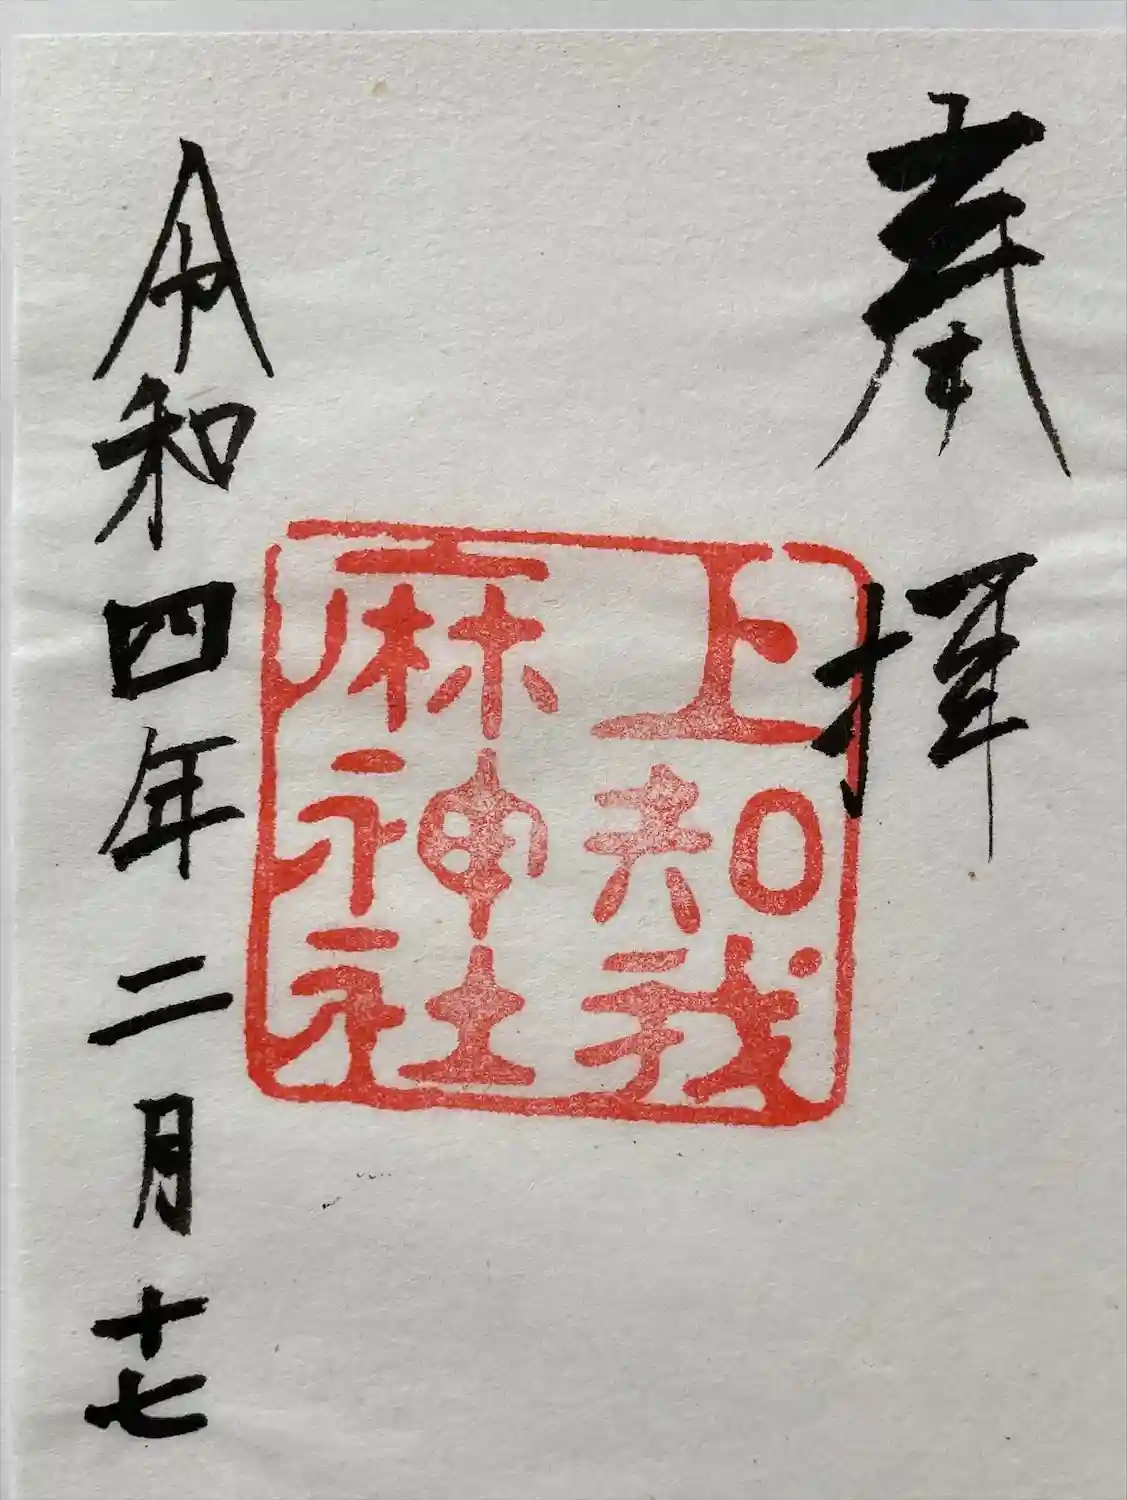 奉拝
上知我
麻神社
令和四年二月十七